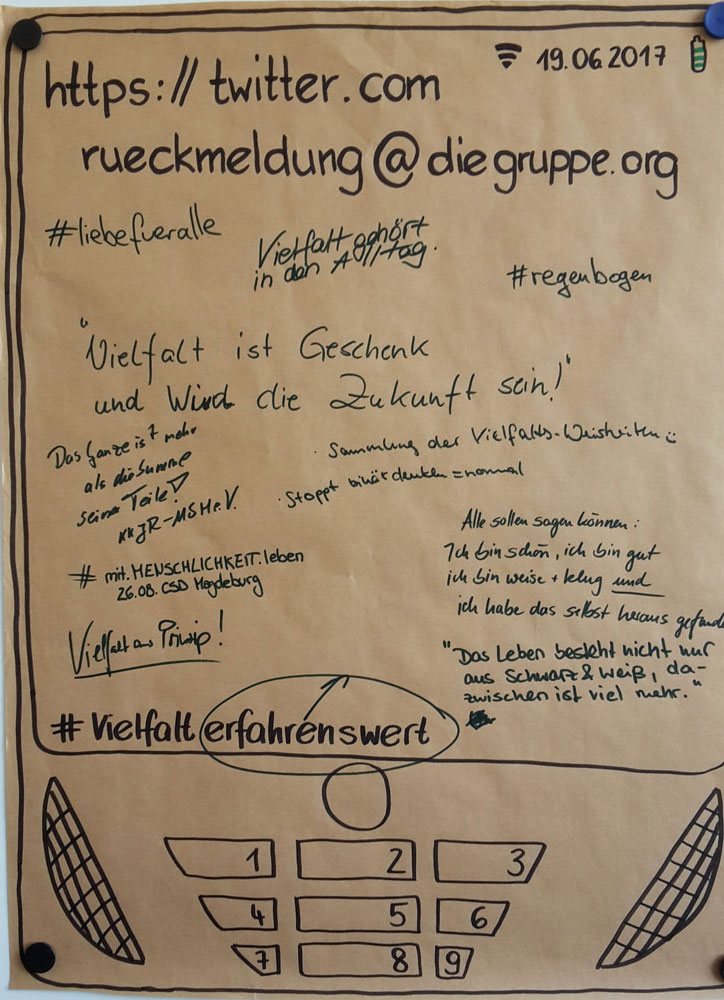 19.06.2017
https://twitter.com
rueckmeldung@diegruppe.org
#liebefueralle
Vielfalt gehört
in den Alltag.
#regenbogen
"Vielfalt ist Geschenk
und wird die Zukunft sein!"
Das Ganze ist mehr
als die Summe
seiner Teile!
KKJR-MSH e.V.
· Sammlung der Vielfalts-Weisheiten
· Stoppt binär denken = normal
Alle sollen sagen können:
Ich bin schön, ich bin gut
ich bin weise + klug und
ich habe das selbst heraus gefunde
# mit.MENSCHLICHKEIT.leben
26.08. CSD Magdeburg
Vielfalt aus Prinzip!
"Das Leben besteht nicht nur
aus Schwarz & weiß, da-
zwischen ist viel mehr."
# Vielfalt erfahrenswert
1 2 3
4 5 6
7 8 9